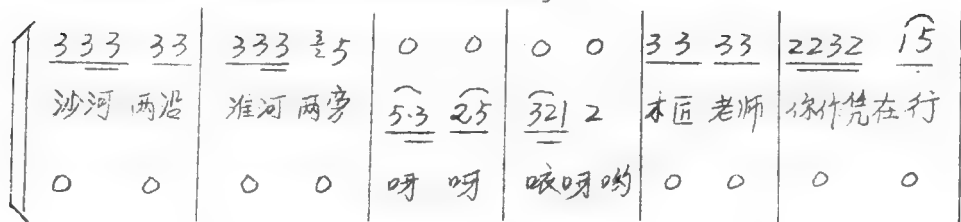 333 33 333 3/2 5 0 0 0 0 33 33 2232 15
沙河 两沿 淮河 两旁 5·3 25 321 2 木匠 老师 你什凭在行
0 0 0 0 呀 呀 咳呀哟 0 0 0 0